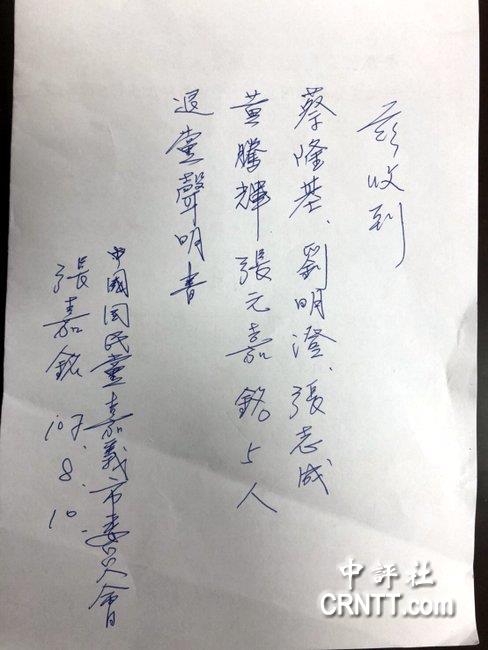 茲收到
蔡隆基、劉明澄、張志成
黃騰輝 張元嘉銘 5人
退黨聲明書
中國国民黨嘉義市委員會
張嘉銘 107.8.10.
中評社
CRNTT.com